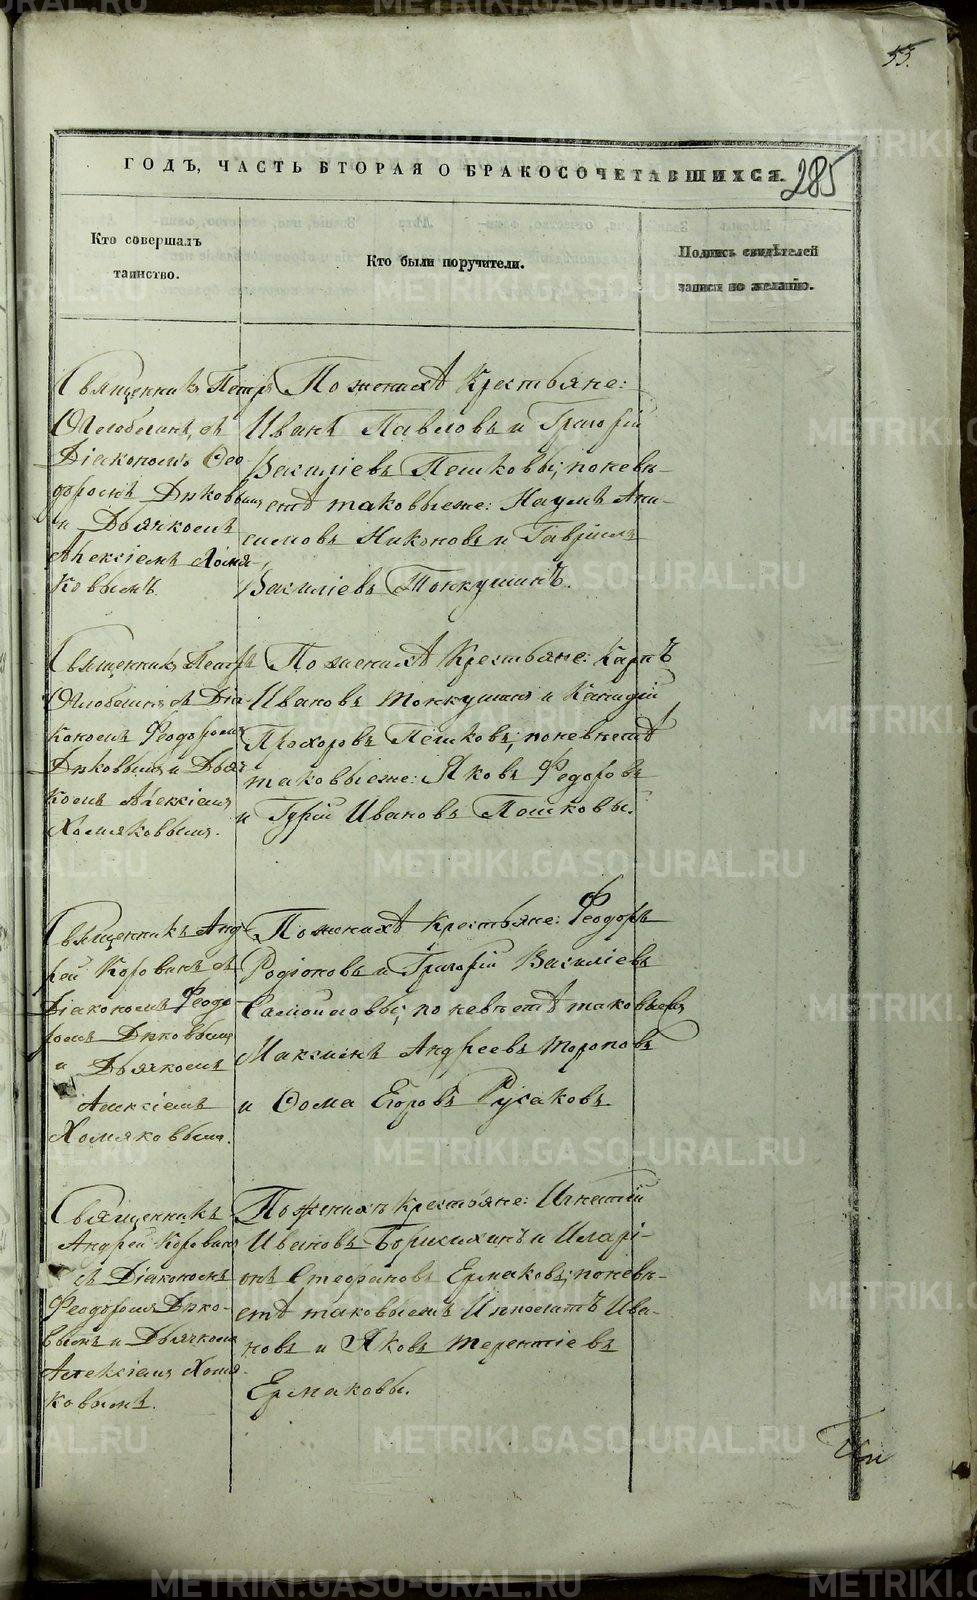 53.
285
ГОДЪ, ЧАСТЬ ВТОРАЯ О БРАКОСОЧЕТАВШИХСЯ.
Кто совершалъ
таинство.
Кто были поручители.
Подпись свидѣтелей
записи по желанію.
Священникъ Петръ
съ
Діакономъ Ѳео
доромъ Дьковымъ
и Дьячкомъ
Алексіемъ Хомя-
ковымъ.
По женихѣ Крестьяне:
Иванъ Павловъ и Григорій
Василіевъ Пешковы; по невѣ-
стѣ таковыеже: Наумъ Ани-
симовъ Никоновъ и Гавріилъ
Василіевъ Тонкушинъ.
Священникъ Петръ
съ Діа
кономъ Феодоромъ
Дьковымъ и Дьяч
комъ Алексіемъ
Хомяковымъ.
По женихѣ Крестьяне: Карпъ
Ивановъ Тонкушинъ и
Прохоровъ Пешковъ; по невѣстѣ
таковыеже: Яковъ Федоровъ
и Гурій Ивановъ Пешковы.
Священникъ Анд
рей Коровинъ съ
Діакономъ Феодо
ромъ Дьковымъ
и Дьячкомъ
Алексіемъ
Хомяковымъ.
По женихѣ Крестьяне: Феодоръ
Родіоновъ и Григорій Василіевъ
Самойловы; по невѣстѣ таковыежъ
Максимъ Андреевъ Тороповъ
и Ѳома Егоровъ Русаковъ.
Священникъ
Андрей Коровинъ
съ Діакономъ
Феодоромъ Дько-
вымъ и Дьячкомъ
Алексіемъ Хомя-
ковымъ.
По женихѣ Крестьяне: Игнатій
Ивановъ и Иларі-
онъ Стефановъ Ермаковъ; по невѣ-
стѣ Ипполитъ Ива-
новъ и Яковъ Терентіевъ
Ермаковы.
METRIKI.GASO-URAL.RU